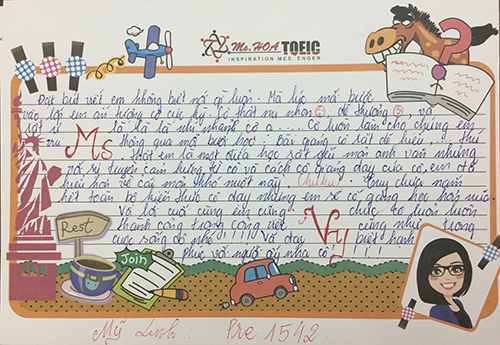 Ms.HOA TOEIC
INSPIRATION MES ENGER
Đặt bút viết em không biết nói gì luôn. Mà lúc mới bước
vào lớp em ấn tượng cô cực kỳ. Cô thật nụ nhon dễ thương, và
rất là là lá nhí nhảnh cơ ạ .... Cô luôn làm cho chúng em
vui Ms thông qua mỗi buổi học! Bài giảng cô rất dễ hiểu, thú
Thật em là một đứa học rất yếu môn anh văn nhưng
với sự truyền cảm hứng từ cô và cách cô giảng dạy của cô, em đã
hiểu hơn về cái môn khó nuốt này. Chiuchiu! Tuy chưa nắm
hết toàn bộ kiến thức cô dạy nhưng em sẽ cố gắng học hơn nữa.
Và lời cuối cùng em cũng Vy chúc cô luôn luôn
thành công trong công việc cũng như trong
cuộc sống đó nhé!!!!! Và đầy biết hạnh
phúc với người ấy nha cô!!!
Rest
Join
Mỹ Linh : Pre 1542